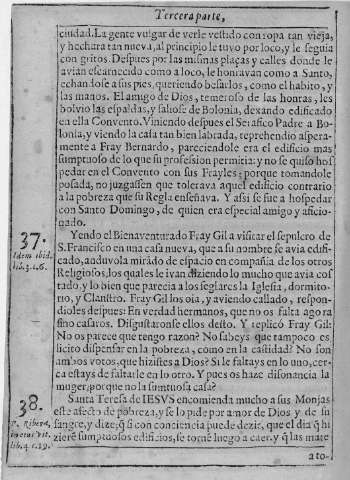 Tercera parte,
ciudad. La gente vulgar de verle vestido con ropa tan vieja,
y hechura tan nueva, al principio le tuvo por loco, y le seguia
con gritos. Despues por las mismas plaças y calles donde le
avian escarnecido como a loco, le honravan como a Santo,
echandose a sus pies, queriendo besarlos, como el habito, y
las manos. El amigo de Dios, temeroso de las honras, les
bolvio las espaldas, y saliose de Bolonia, dexando edificado
en ella Convento. Viniendo despues el Serafico Padre a Bo-
lonia, y viendo la casa tan bien labrada, reprehendio aspera-
mente a Fray Bernardo, pareciendole era el edificio mas
sumptuoso de lo que su profession permitia: y no se quiso hos
pedar en el Convento con sus Frayles; porque tomandole
posada, no juzgassen que tolerava aquel edificio contrario
a la pobreza que su Regla enseñava. Y assi se fue a hospedar
con Santo Domingo, de quien era especial amigo y aficio-
nado.
37.
Idem ibid.
lib. 3. c. 6.
Yendo el Bienaventurado Fray Gil a visitar el sepulcro de
S. Francisco en una casa nueva, que a su nombre se avia edifi-
cado, anduvola mirãdo de espacio en compañia de los otros
Religiosos, los quales le ivan diziendo lo mucho que avia cos
tado, y lo bien que parecia a los seglares la Iglesia, dormito-
rio, y Claustro. Fray Gil los oìa, y aviendo callado, respon-
dioles despues: En verdad hermanos, que no os falta agora
sino casaros. Disgustaronse ellos desto. Y replicó Fray Gil:
No os parece que tengo razon? No sabeys que tampoco es
licito dispensar en la pobreza, como en la castidad? No son
ambos votos, que hizistes a Dios? Si le faltays en lo uno, cer-
ca estays de faltarle en lo otro. Y pues os haze disonancia la
muger, porque no la sumtuosa casa?
38.
P. Ribera,
in eius vit.
lib. 4. c. 19.
Santa Teresa de IESVS encomienda mucho a sus Monjas
este afecto de pobreza, y se lo pide por amor de Dios y de su
sangre, y dize, q̃ si con conciencia puede dezir, que el dia q̃ hi
zierẽ sumptuosos edificios, se torne luego a caer, y q̃ las mate
a to-